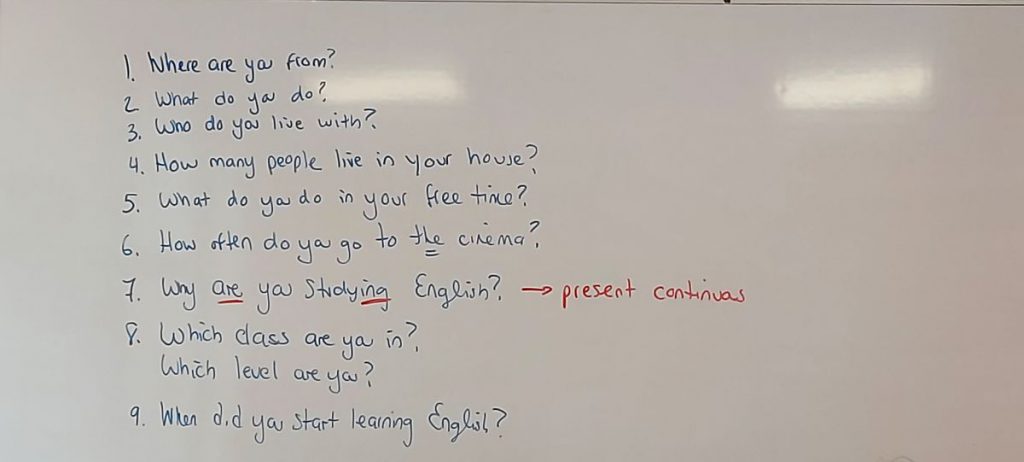 1. Where are you from?
2. What do you do?
3. Who do you live with?
4. How many people live in your house?
5. What do you do in your free time?
6. How often do you go to the cinema?
7. Why are you studying English? → present continuous
8. Which class are you in?
Which level are you?
9. When did you start learning English?